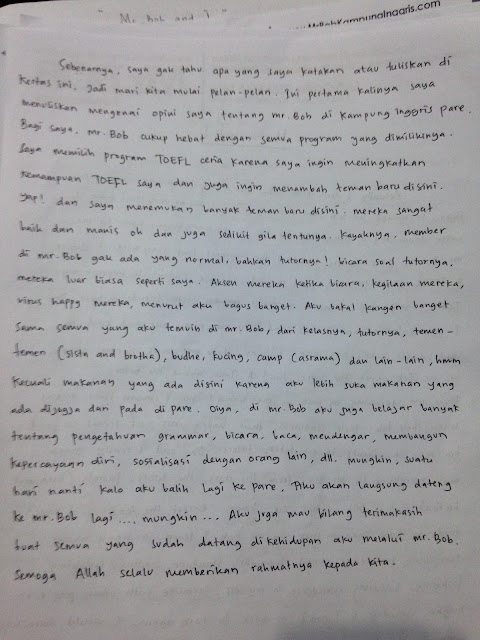 " Mr. Bob and I "
KampungInggris.com
Sebenarnya, saya gak tahu apa yang saya katakan atau tuliskan di
kertas ini. Jadi mari kita mulai pelan-pelan. Ini pertama kalinya saya
menuliskan mengenai opini saya tentang mr. Bob di Kampung Inggris pare.
Bagi saya, mr. Bob cukup hebat dengan semua program yang dimilikinya.
Saya memilih program TOEFL ceria karena saya ingin meningkatkan
kemampuan TOEFL saya dan juga ingin menambah teman baru disini.
yap! dan saya menemukan banyak teman baru disini. mereka sangat
baik dan manis oh dan juga sedikit gila tentunya. Kayaknya, member
di mr. Bob gak ada yang normal, bahkan tutornya! bicara soal tutornya,
mereka luar biasa seperti saya. Aksen mereka ketika bicara, kegilaan mereka,
virus happy mereka, menurut aku bagus banget. Aku bakal kangen banget
sama semua yang aku temuin di mr. Bob, dari kelasnya, tutornya, temen-
temen (sista and brotha), budhe, kucing, camp (asrama) dan lain-lain, hmm
kecuali makanan yang ada disini karena aku lebih suka makanan yang
ada dijogja dan pada di pare. Oiya, di mr. Bob aku juga belajar banyak
tentang pengetahuan grammar, bicara, baca, mendengar, membangun
kepercayaan diri, sosialisasi dengan orang lain, dll. mungkin, suatu
hari nanti kalo aku balih lagi ke pare, Aku akan langsung dateng
ke mr. Bob lagi .... mungkin ... Aku juga mau bilang terimakasih
buat semua yang sudah datang di kehidupan aku melalui mr. Bob.
Semoga Allah selalu memberikan rahmatnya kepada kita.